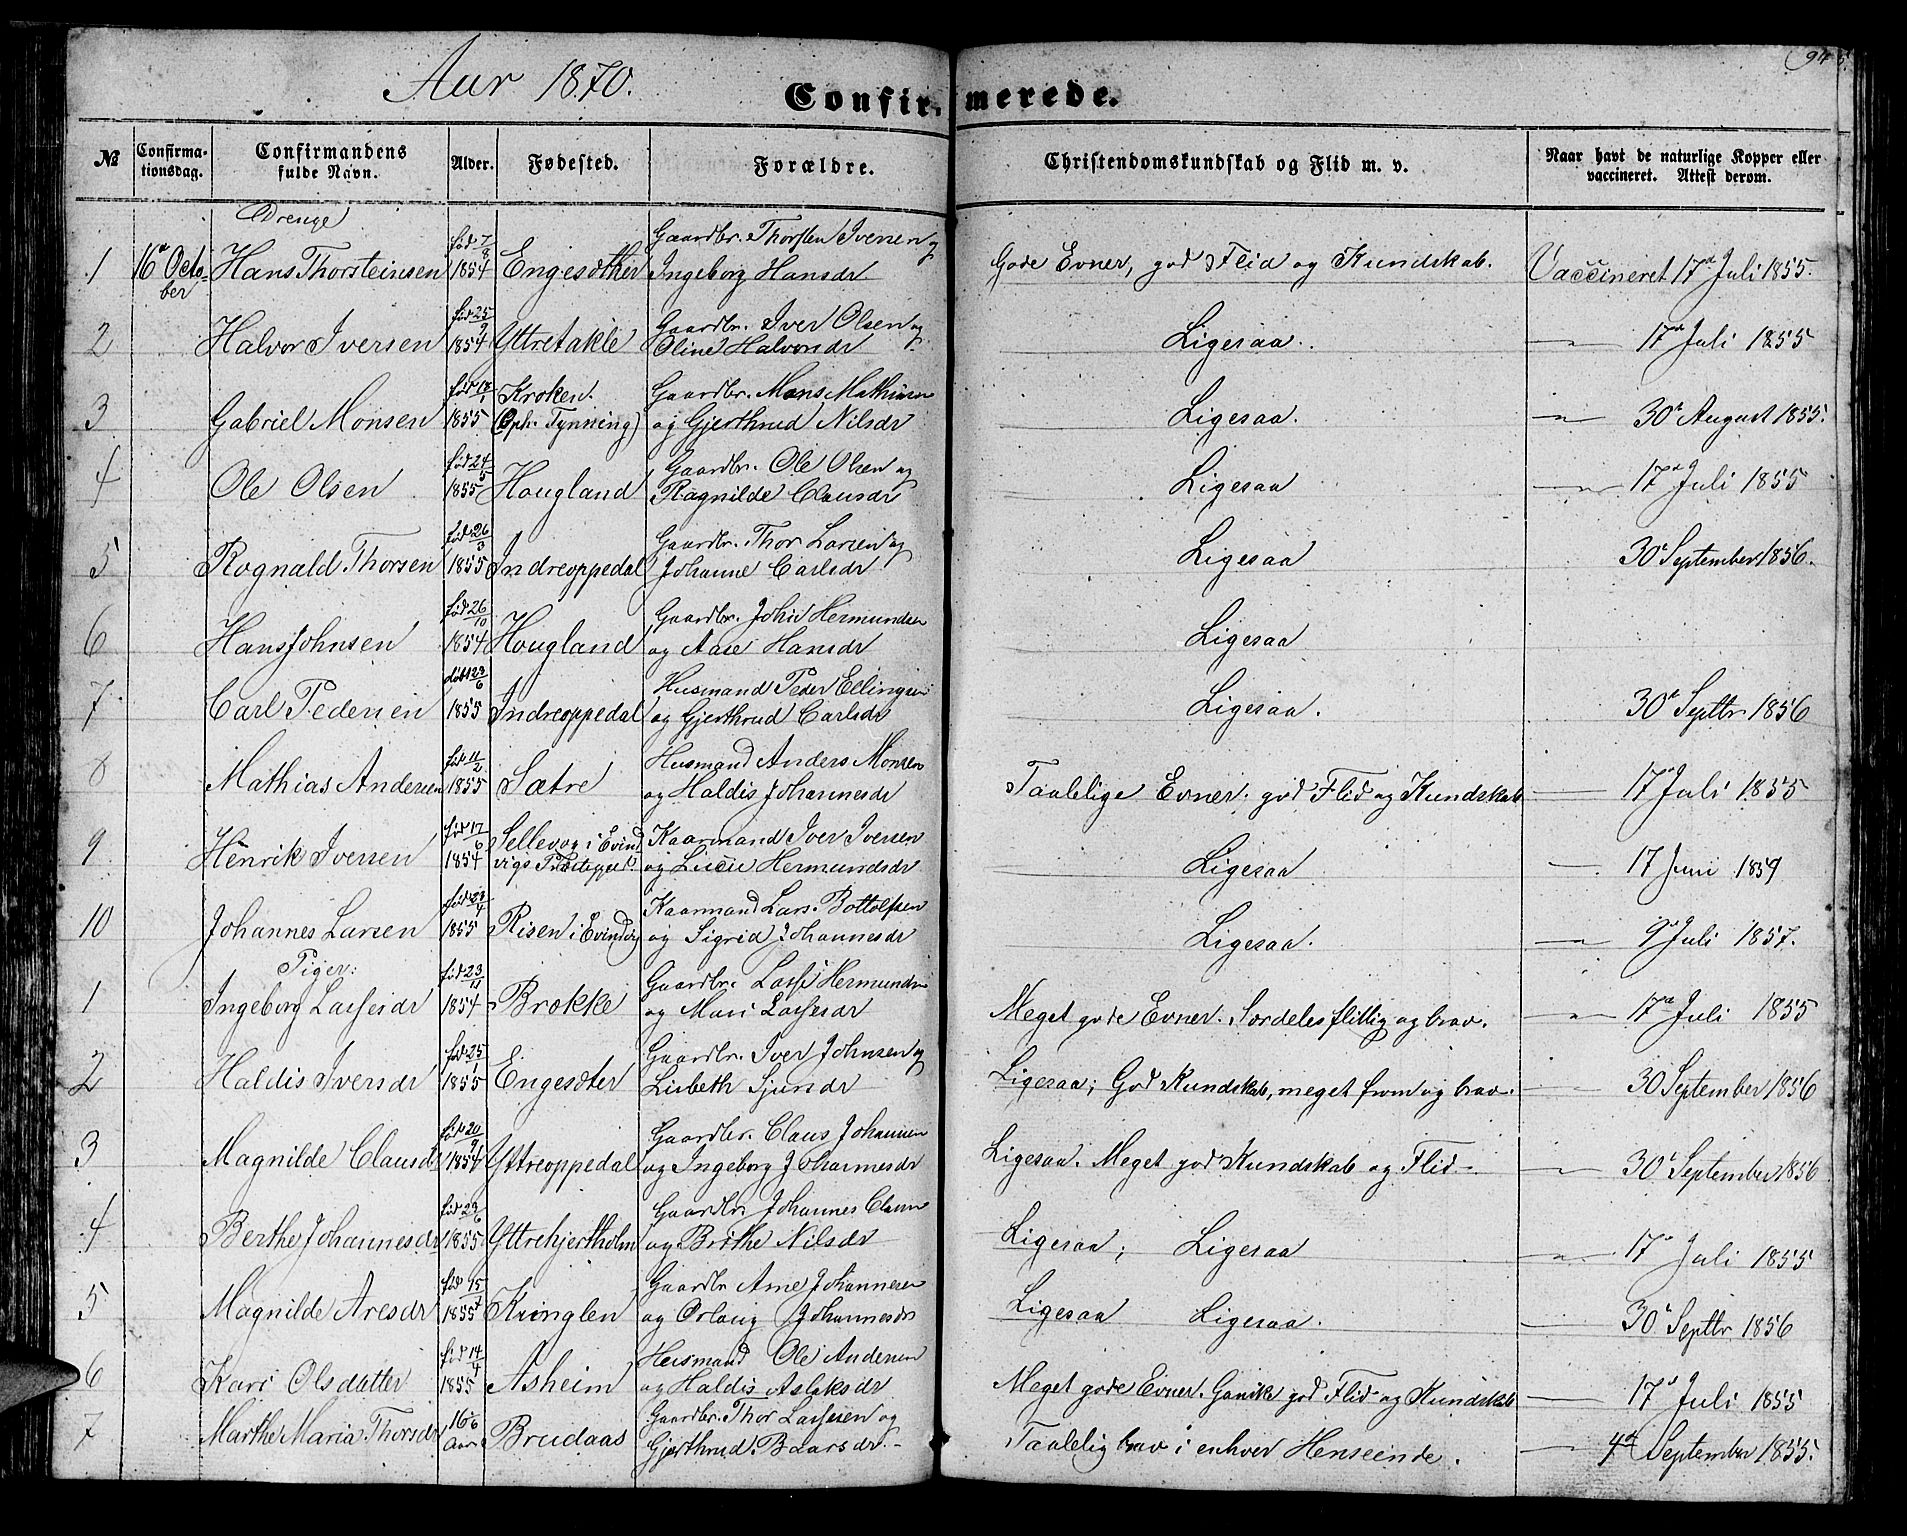 Aar 1870.
Confirmerede.
94
№ Confirmationsdag. Confirmandens fulde Navn. Alder. Fødested. Forældre. Christendomskundskab og Flid m. v. Naar havt de naturlige Kopper eller vaccineret. Attest derom.
Drenge
1 16de October Hans Thorsteinsen født 7/8 1854 Engesæther Gaardbr. Thorsten Iversen og Ingeborg Hansdr Gode Evner, god Flid og Kundskab. Vaccineret 17de Juli 1855.
2 Halvor Iversen født 25/9 1854 Yttretakle Gaardbr. Iver Olsen og Oline Halvorsdr Ligesaa. — " — 17de Juli 1855
3 Gabriel Monsen 1855 Kroken. (Oph. Tynning) Gaardbr. Mons Mathiasen og Gjerthrud Nilsdr Ligesaa. — " — 30te August 1855.
4 Ole Olsen født 24/5 1855 Hougland Gaardbr. Ole Olsen og Ragnilde Clausdr Ligesaa — " — 17de Juli 1855
5 Rognald Thorsen født 26/3 1855 Indreoppedal Gaardbr. Thor Larsen og Johanne Carlsdr Ligesaa 30te September 1856.
6 Hans Johnsen født 26/10 1854 Hougland Gaardbr. John Hermundsen og Aase Hansdr Ligesaa
7 Carl Pedersen født 23/6 1855 Indreoppedal Husmand Peder Ellingsen og Gjerthrud Carlsdr Ligesaa. 30te Septbr 1856
8 Mathias Andersen født 11/2 1855 Sætre Husmand Anders Monsen og Haldis Johannesdr Taalelige Evner; god Flid og Kundskab — 17de Juli 1855
9 Henrik Iversen født 17/6 1854 Sellevog i Evindvigs Præstegjeld Kaarmand Iver Iversen og Lucie Hermundsdr Ligesaa — " — 17 Juni 1859
10 Johannes Larsen født 23/4 1855 Risen i Evindvig Kaarmand Lars Bottolfsen og Sigrid Johannesdr Ligesaa. — " — 9de Juli 1857.
Piger:
1 Ingeborg Lassesdr født 23/11 1854 Brekke Gaardbr. Lasse Hermundsen og Mari Lassesdr Meget gode Evner. Særdeles flittig og brav. — " — 17de Juli 1855
2 Haldis Iversdr født 25/1 1855 Engesæter Gaardbr. Iver Johnsen og Lisbeth Sjursdr Ligesaa; God Kundskab, meget from og brav. — " — 30 September 1856
3 Magnilde Clausdr født 20/9 1854 Yttreoppedal Gaardbr. Claus Johannesen og Ingeborg Johannesdr Ligesaa. Meget god Kundskab og Flid — " — 30te September 1856
4 Berthe Johannesdr født 29/6 1855 Yttrehjertholm Gaardbr. Johannes Clausen og Brithe Nilsdr Ligesaa; Ligesaa — " — 17de Juli 1855
5 Magnilde Aresdr født 15/7 1855 Kringlen Gaardbr Arne Johannesen og Orlaug Johannesdr Ligesaa Ligesaa. — 30te Septbr 1856
6 Kari Olsdatter født 14/4 1855 Asheim Husmand Ole Andersen og Haldis Aslaksdr Meget gode Evner. Ganske god Flid og Kundskab — 17de Juli 1855
7 Marthe Maria Thorsdr 16 Aar Brudaas Gaardbr. Thor Lassesen og Gjerthrud Baarsdr. Taalelig brav i enhver Henseende. — 4de September 1855.